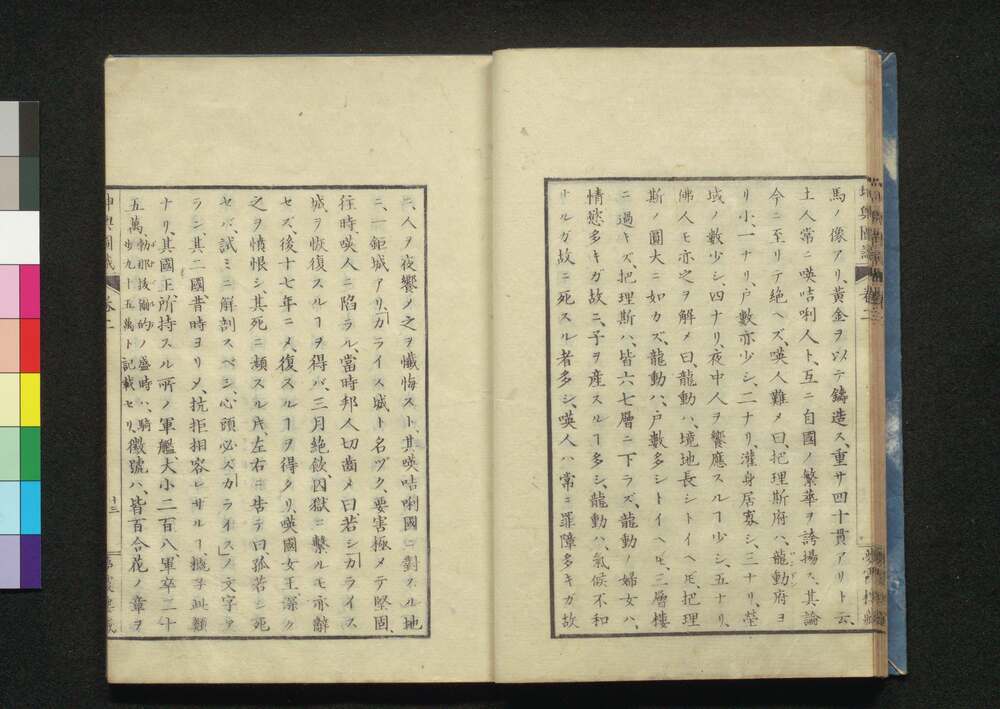 馬ノ像アリ、黄金ヲ以テ鑄造ス、重サ四十貫アリト云、
土人常ニ暎咭唎人ト、互ニ自國ノ繁華ヲ誇揚ス、其論
今ニ至リテ絶ヘズ、暎人難メ曰、把理斯府ハ、龍動府ヨ
リ小、一ナリ、戸數亦少シ、二ナリ、灌身居寡シ、三ナリ、塋
域ノ數少シ、四ナリ、夜中人ヲ饗應スルヿ少シ、五ナリ、
佛人モ亦之ヲ解メ曰、龍動ハ、境地長シトイヘ𪜈、把理
斯ノ圓大ニ如カズ、龍動ハ、戸數多シトイヘ𪜈、三層樓
ニ過キズ、把理斯ハ、皆六七層ニ下ラズ、龍動ノ婦女ハ、
情慾多キガ故ニ、子ヲ産スルヿ多シ、龍動ハ、氣候不和
ナルガ故ニ、死スル者多シ、暎人ハ常ニ罪障多キガ故
ニ、人ヲ夜饗メ之ヲ懺悔スト、其暎咭唎國ニ對スル地
ニ、一鉅城アリ、「カライス」城ト名ヅク、要害極メテ堅固、
往時、暎人ニ陷ラル、當時邦人切齒メ曰、若シ「カライス
城ヲ恢復スルヿヲ得バ、三月絶飲、囚獄ニ繫ルモ亦辭
セズ、後十七年ニメ、復スルヿヲ得タリ、暎國女王、深ク
之ヲ憤恨シ、其死ニ頻スル𪜈、左右ニ告テ曰、孤若シ死
セバ、試ミニ解剖スベシ、心頭必ズ「カライス」ノ文字ヲ
ラシ、其二國昔時ヨリメ、抗拒相容レサルヿ、槪子此類
ナリ、其國王所持スル所ノ軍艦大小二百八、軍卒二十
五萬、勃那抜爾的ノ盛時ハ、騎
步九十五萬ト記載セリ、徽號ハ、皆百合花ノ章ヲ
坤輿圖識
卷二
十三